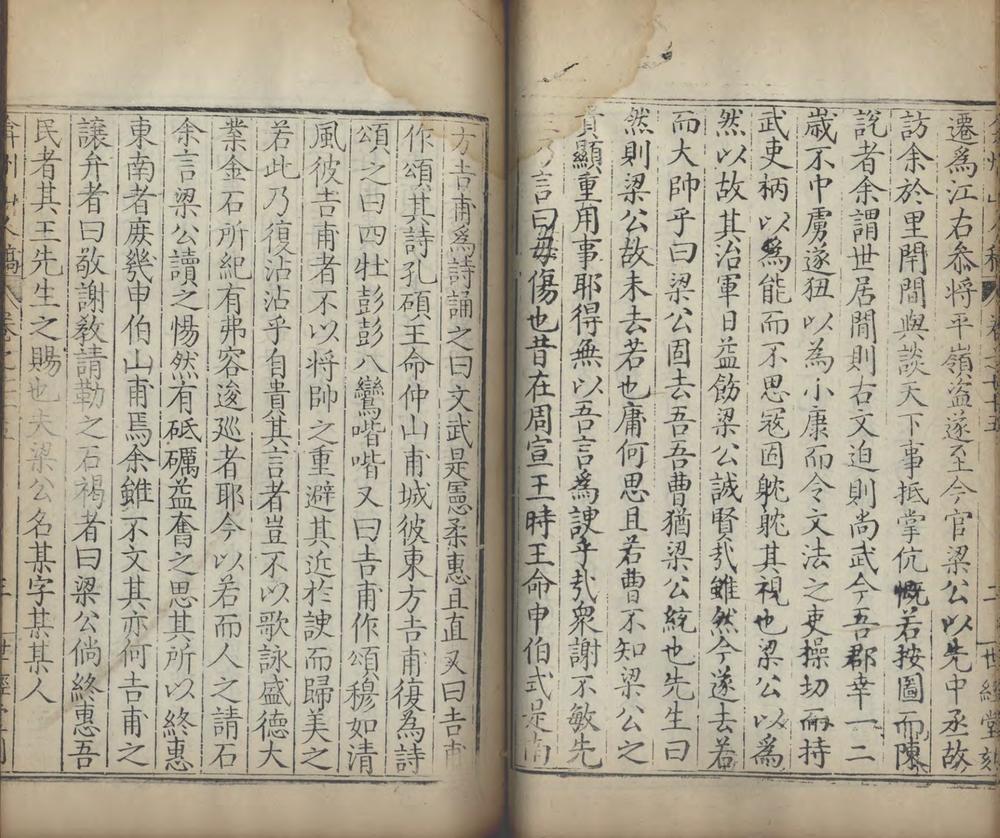 世經堂刻
遷爲江右叅將平嶺盜遂至今官梁公以先中丞故
訪余於里閈間與談天下事抵掌伉慨若按圖而陳
說者余謂世居閒則右文迫則尚武今吾郡幸一二
歲不中虜遂狃以為小康而令文法之吏操切而持
武吏柄以爲能而不思冦固眈眈其視也梁公以爲
然以故其治軍日益飭梁公誠賢㢤雖然今遂去若
而大帥乎曰梁公固去吾吾曹猶梁公統也先生曰
然則梁公故未去若也庸何思且若曹不知梁公之
顯重用事耶得無以吾言為諛乎㢤衆謝不敏先
言曰毋傷也昔在周宣王時王命申伯式是南
方吉甫爲詩誦之曰文武是憲柔惠且直又曰吉甫
作頌其詩孔碩王命仲山甫城彼東方吉甫復為詩
頌之曰四牡彭彭八鸞喈喈又曰吉甫作頌穆如清
風彼吉甫者不以将帥之重避其近於諛而歸美之
若此乃復沾沾乎自貴其言者豈不以歌詠盛德大
業金石所紀有弗容逡廵者耶今以若而人之請石
余言梁公讀之惕然有砥礪益奮之思其所以終惠
東南者庻幾申伯山甫焉余雖不文其亦何吉甫之
讓弁者曰敬謝敎請勒之石褐者曰梁公倘終惠吾
民者其王先生之賜也夫梁公名某字某某人
弇州山人稿 卷之